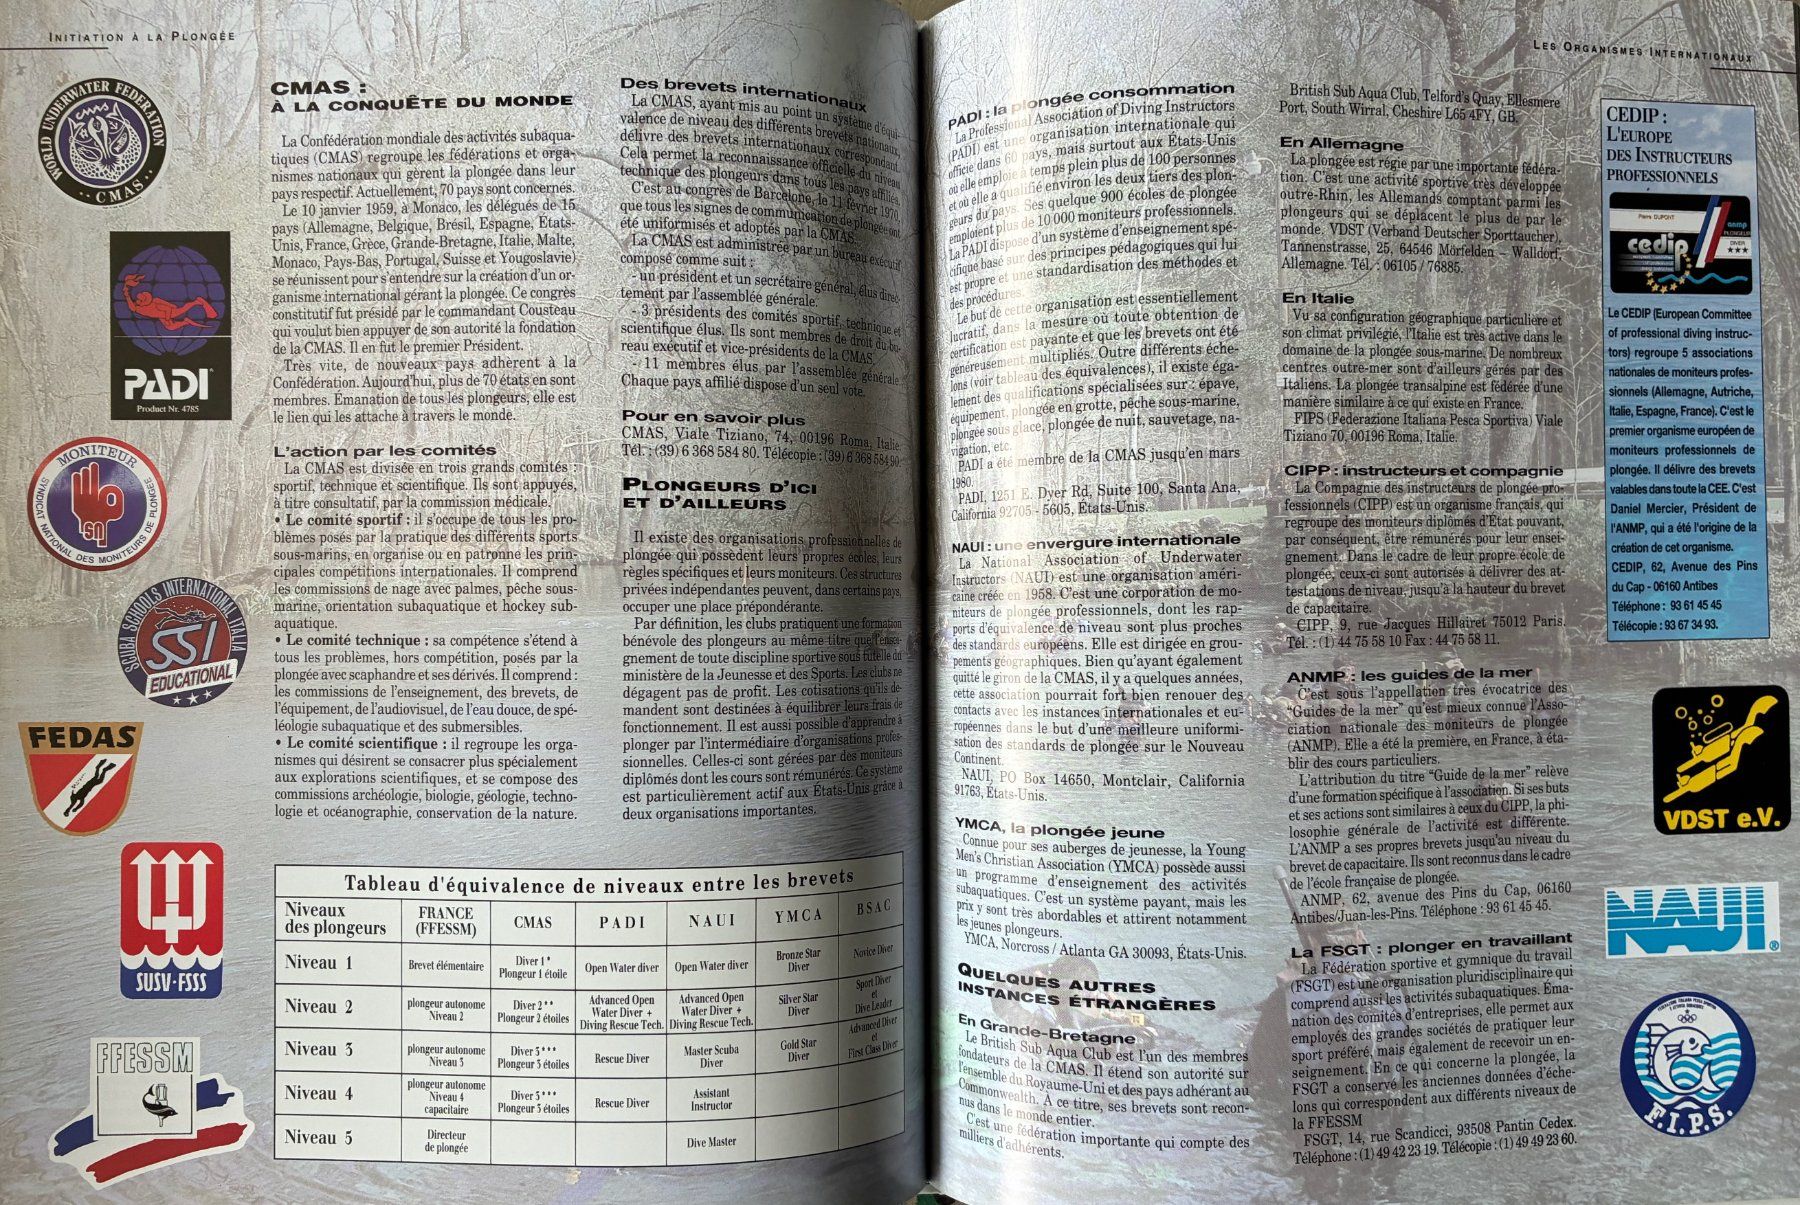 INITIATION À LA PLONGÉE
WORLD UNDERWATER FEDERATION
CMAS
PADI
Product Nr. 4785
MONITEUR
SYNDICAT NATIONAL DES MONITEURS DE PLONGÉE
SCUBA SCHOOLS INTERNATIONAL ITALIA
SSI
EDUCATIONAL
FEDAS
SUSV-FSSS
FFESSM
CMAS :
À LA CONQUÊTE DU MONDE
La Confédération mondiale des activités subaqua-
tiques (CMAS) regroupe les fédérations et orga-
nismes nationaux qui gèrent la plongée dans leur
pays respectif. Actuellement, 70 pays sont concernés.
Le 10 janvier 1959, à Monaco, les délégués de 15
pays (Allemagne, Belgique, Brésil, Espagne, Etats-
Unis, France, Grèce, Grande-Bretagne, Italie, Malte,
Monaco, Pays-Bas, Portugal, Suisse et Yougoslavie)
se réunissent pour s'entendre sur la création d'un or-
ganisme international gérant la plongée. Ce congrès
constitutif fut présidé par le commandant Cousteau
qui voulut bien appuyer de son autorité la fondation
de la CMAS. Il en fut le premier Président.
Très vite, de nouveaux pays adhèrent à la
Confédération. Aujourd'hui, plus de 70 états en sont
membres. Emanation de tous les plongeurs, elle est
le lien qui les attache à travers le monde.
L'action par les comités
La CMAS est divisée en trois grands comités :
sportif, technique et scientifique. Ils sont appuyés,
à titre consultatif, par la commission médicale.
• Le comité sportif : il s'occupe de tous les pro-
blèmes posés par la pratique des différents sports
sous-marins, en organise ou en patronne les prin-
cipales compétitions internationales. Il comprend
les commissions de nage avec palmes, pêche sous-
marine, orientation subaquatique et hockey sub-
aquatique.
• Le comité technique : sa compétence s'étend à
tous les problèmes, hors compétition, posés par la
plongée avec scaphandre et ses dérivés. Il comprend :
les commissions de l'enseignement, des brevets, de
l'équipement, de l'audiovisuel, de l'eau douce, de spé-
léologie subaquatique et des submersibles.
• Le comité scientifique : il regroupe les orga-
nismes qui désirent se consacrer plus spécialement
aux explorations scientifiques, et se compose des
commissions archéologie, biologie, géologie, techno-
logie et océanographie, conservation de la nature.
Des brevets internationaux
La CMAS, ayant mis au point un système d'équi-
valence de niveau des différents brevets nationaux,
délivre des brevets internationaux correspondant.
Cela permet la reconnaissance officielle du niveau
technique des plongeurs dans tous les pays affiliés.
C'est au congrès de Barcelone, le 11 février 1970,
que tous les signes de communication de plongée ont
été uniformisés et adoptés par la CMAS.
La CMAS est administrée par un bureau exécutif
composé comme suit :
- un président et un secrétaire général, élus direc-
tement par l'assemblée générale.
- 3 présidents des comités sportif, technique et
scientifique élus. Ils sont membres de droit du bu-
reau exécutif et vice-présidents de la CMAS.
- 11 membres élus par l'assemblée générale
Chaque pays affilié dispose d'un seul vote.
Pour en savoir plus
CMAS, Viale Tiziano, 74, 00196 Roma, Italie
Tél. : (39) 6 368 584 80. Télécopie : (39) 6 368 584 90.
PLONGEURS D'ICI
ET D'AILLEURS
Il existe des organisations professionnelles de
plongée qui possèdent leurs propres écoles, leurs
règles spécifiques et leurs moniteurs. Ces structures
privées indépendantes peuvent, dans certains pays,
occuper une place prépondérante.
Par définition, les clubs pratiquent une formation
bénévole des plongeurs au même titre que l'ensei-
gnement de toute discipline sportive sous tutelle du
ministère de la Jeunesse et des Sports. Les clubs ne
dégagent pas de profit. Les cotisations qu'ils de-
mandent sont destinées à équilibrer leurs frais de
fonctionnement. Il est aussi possible d'apprendre à
plonger par l'intermédiaire d'organisations profes-
sionnelles. Celles-ci sont gérées par des moniteurs
diplômés dont les cours sont rémunérés. Ce système
est particulièrement actif aux États-Unis grâce à
deux organisations importantes.
Tableau d'équivalence de niveaux entre les brevets
Niveaux des plongeurs | FRANCE (FFESSM) | CMAS | PADI | NAUI | YMCA | BSAC
Niveau 1 | Brevet élémentaire | Diver 1* Plongeur 1 étoile | Open Water diver | Open Water diver | Bronze Star Diver | Novice Diver
Niveau 2 | plongeur autonome Niveau 2 | Diver 2** Plongeur 2 étoiles | Advanced Open Water Diver + Diving Rescue Tech. | Advanced Open Water Diver + Diving Rescue Tech. | Silver Star Diver | Sport Diver et Dive Leader
Niveau 3 | plongeur autonome Niveau 3 | Diver 3*** Plongeur 3 étoiles | Rescue Diver | Master Scuba Diver | Gold Star Diver | Advanced Diver et First Class Diver
Niveau 4 | plongeur autonome Niveau 4 capacitaire | Diver 3*** Plongeur 3 étoiles | Rescue Diver | Assistant Instructor
Niveau 5 | Directeur de plongée | Dive Master
LES ORGANISMES INTERNATIONAUX
PADI : la plongée consommation
La Professional Association of Diving Instructors
(PADI) est une organisation internationale qui
officie dans 60 pays, mais surtout aux États-Unis
où elle emploie à temps plein plus de 100 personnes
et où elle a qualifié environ les deux tiers des plon-
geurs du pays. Ses quelque 900 écoles de plongée
emploient plus de 10 000 moniteurs professionnels.
La PADI dispose d'un système d'enseignement spé-
cifique basé sur des principes pédagogiques qui lui
est propre et une standardisation des méthodes et
des procédures.
Le but de cette organisation est essentiellement
lucratif, dans la mesure où toute obtention de
certification est payante et que les brevets ont été
généreusement multipliés. Outre différents éche-
lons (voir tableau des équivalences), il existe éga-
lement des qualifications spécialisées sur : épave,
équipement, plongée en grotte, pêche sous-marine,
plongée sous glace, plongée de nuit, sauvetage, na-
vigation, etc.
PADI a été membre de la CMAS jusqu'en mars
1980.
PADI, 1251 E. Dyer Rd, Suite 100, Santa Ana,
California 92705 - 5605, États-Unis.
NAUI : une envergure internationale
La National Association of Underwater
Instructors (NAUI) est une organisation améri-
caine créée en 1958. C'est une corporation de mo-
niteurs de plongée professionnels, dont les rap-
ports d'équivalence de niveau sont plus proches
des standards européens. Elle est dirigée en grou-
pements géographiques. Bien qu'ayant également
quitté le giron de la CMAS, il y a quelques années,
cette association pourrait fort bien renouer des
contacts avec les instances internationales et eu-
ropéennes dans le but d'une meilleure uniformi-
sation des standards de plongée sur le Nouveau
Continent.
NAUI, PO Box 14650, Montclair, California
91763, États-Unis.
YMCA, la plongée jeune
Connue pour ses auberges de jeunesse, la Young
Men's Christian Association (YMCA) possède aussi
un programme d'enseignement des activités
subaquatiques. C'est un système payant, mais les
prix y sont très abordables et attirent notamment
les jeunes plongeurs.
YMCA, Norcross / Atlanta GA 30093, États-Unis.
QUELQUES AUTRES
INSTANCES ÉTRANGÈRES
En Grande-Bretagne
Le British Sub Aqua Club est l'un des membres
fondateurs de la CMAS. Il étend son autorité sur
l'ensemble du Royaume-Uni et des pays adhérant au
Commonwealth. A ce titre, ses brevets sont recon-
nus dans le monde entier.
C'est une fédération importante qui compte des
milliers d'adhérents.
British Sub Aqua Club, Telford's Quay, Ellesmere
Port, South Wirral, Cheshire L65 4FY, GB.
En Allemagne
La plongée est régie par une importante fédéra-
tion. C'est une activité sportive très développée
outre-Rhin, les Allemands comptant parmi les
plongeurs qui se déplacent le plus de par le
monde. VDST (Verband Deutscher Sporttaucher),
Tannenstrasse, 25, 64546 Mörfelden – Walldorf,
Allemagne. Tél. : 06105 / 76885.
En Italie
Vu sa configuration géographique particulière et
son climat privilégié, l'Italie est très active dans le
domaine de la plongée sous-marine. De nombreux
centres outre-mer sont d'ailleurs gérés par des
Italiens. La plongée transalpine est fédérée d'une
manière similaire à ce qui existe en France.
FIPS (Federazione Italiana Pesca Sportiva) Viale
Tiziano 70, 00196 Roma, Italie.
CIPP : instructeurs et compagnie
La Compagnie des instructeurs de plongée pro-
fessionnels (CIPP) est un organisme français, qui
regroupe des moniteurs diplômés d'Etat pouvant,
par conséquent, être rémunérés pour leur ensei-
gnement. Dans le cadre de leur propre école de
plongée, ceux-ci sont autorisés à délivrer des at-
testations de niveau, jusqu'à la hauteur du brevet
de capacitaire.
CIPP, 9, rue Jacques Hillairet 75012 Paris.
Tél. : (1) 44 75 58 10 Fax : 44 75 58 11.
ANMP : les guides de la mer
C'est sous l'appellation très évocatrice des
"Guides de la mer" qu'est mieux connue l'Asso-
ciation nationale des moniteurs de plongée
(ANMP). Elle a été la première, en France, à éta-
blir des cours particuliers.
L'attribution du titre "Guide de la mer" relève
d'une formation spécifique à l'association. Si ses buts
et ses actions sont similaires à ceux du CIPP, la phi-
losophie générale de l'activité est différente.
L'ANMP a ses propres brevets jusqu'au niveau du
brevet de capacitaire. Ils sont reconnus dans le cadre
de l'école française de plongée.
ANMP, 62, avenue des Pins du Cap, 06160
Antibes/Juan-les-Pins. Téléphone : 93 61 45 45.
La FSGT : plonger en travaillant
La Fédération sportive et gymnique du travail
(FSGT) est une organisation pluridisciplinaire qui
comprend aussi les activités subaquatiques. Éma-
nation des comités d'entreprises, elle permet aux
employés des grandes sociétés de pratiquer leur
sport préféré, mais également de recevoir un en-
seignement. En ce qui concerne la plongée, la
FSGT a conservé les anciennes données d'éche-
lons qui correspondent aux différents niveaux de
la FFESSM
FSGT, 14, rue Scandicci, 93508 Pantin Cedex.
Téléphone : (1) 49 42 23 19. Télécopie : (1) 49 49 23 60.
CEDIP :
L'EUROPE
DES INSTRUCTEURS
PROFESSIONNELS
Pierre DUPONT
cedip
anmp
PLONGEUR
DIVER
★★★
Le CEDIP (European Committee
of professional diving instruc-
tors) regroupe 5 associations
nationales de moniteurs profes-
sionnels (Allemagne, Autriche,
Italie, Espagne, France). C'est le
premier organisme européen de
moniteurs professionnels de
plongée. Il délivre des brevets
valables dans toute la CEE. C'est
Daniel Mercier, Président de
l'ANMP, qui a été l'origine de la
création de cet organisme.
CEDIP, 62, Avenue des Pins
du Cap - 06160 Antibes
Téléphone : 93 61 45 45
Télécopie : 93 67 34 93.
VDST e.V.
NAUI®
FEDERAZIONE ITALIANA PESCA SPORTIVA
F.I.P.S.